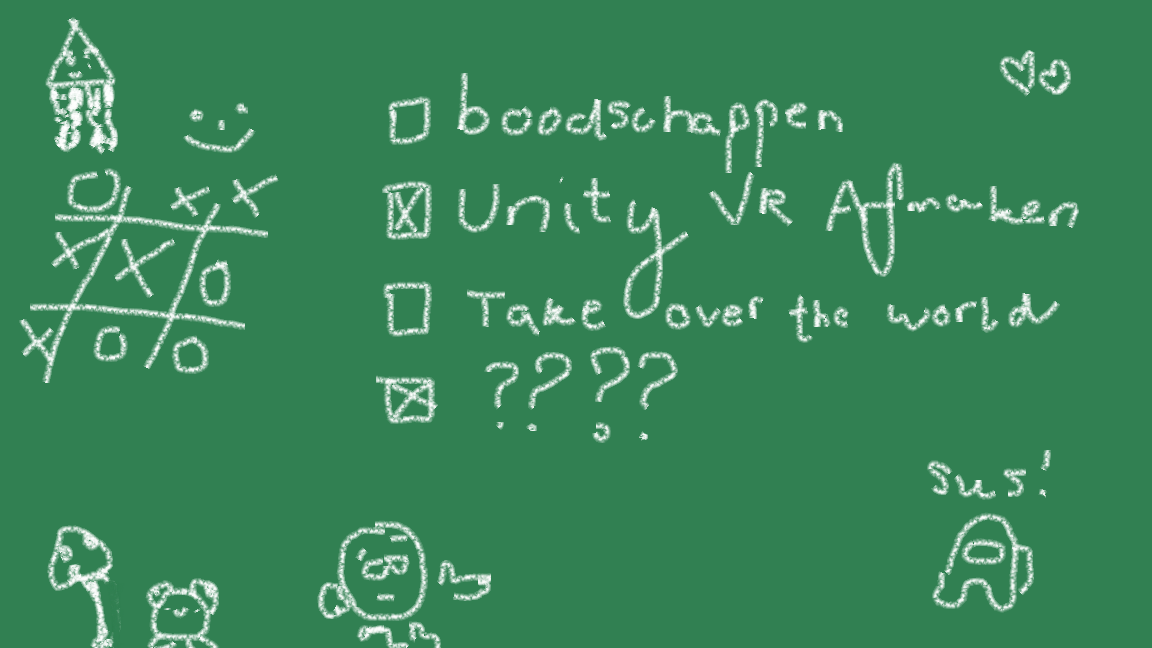 boodschappen
Unity VR Afmaken
Take over the world
????
sus!
O X X
X X O
X O O